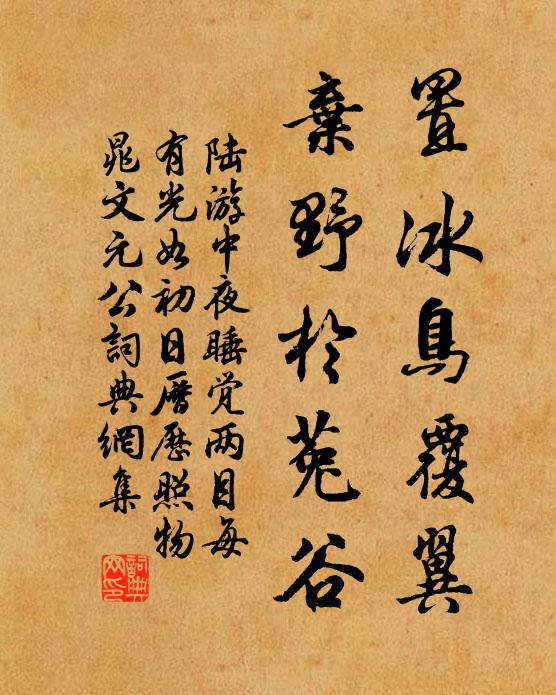 置冰鳥覆翼
棄野於菟谷
陆游中夜睡觉两目每
有光如初日曆歷照物
晁文元公詞典網集
詞典
网印